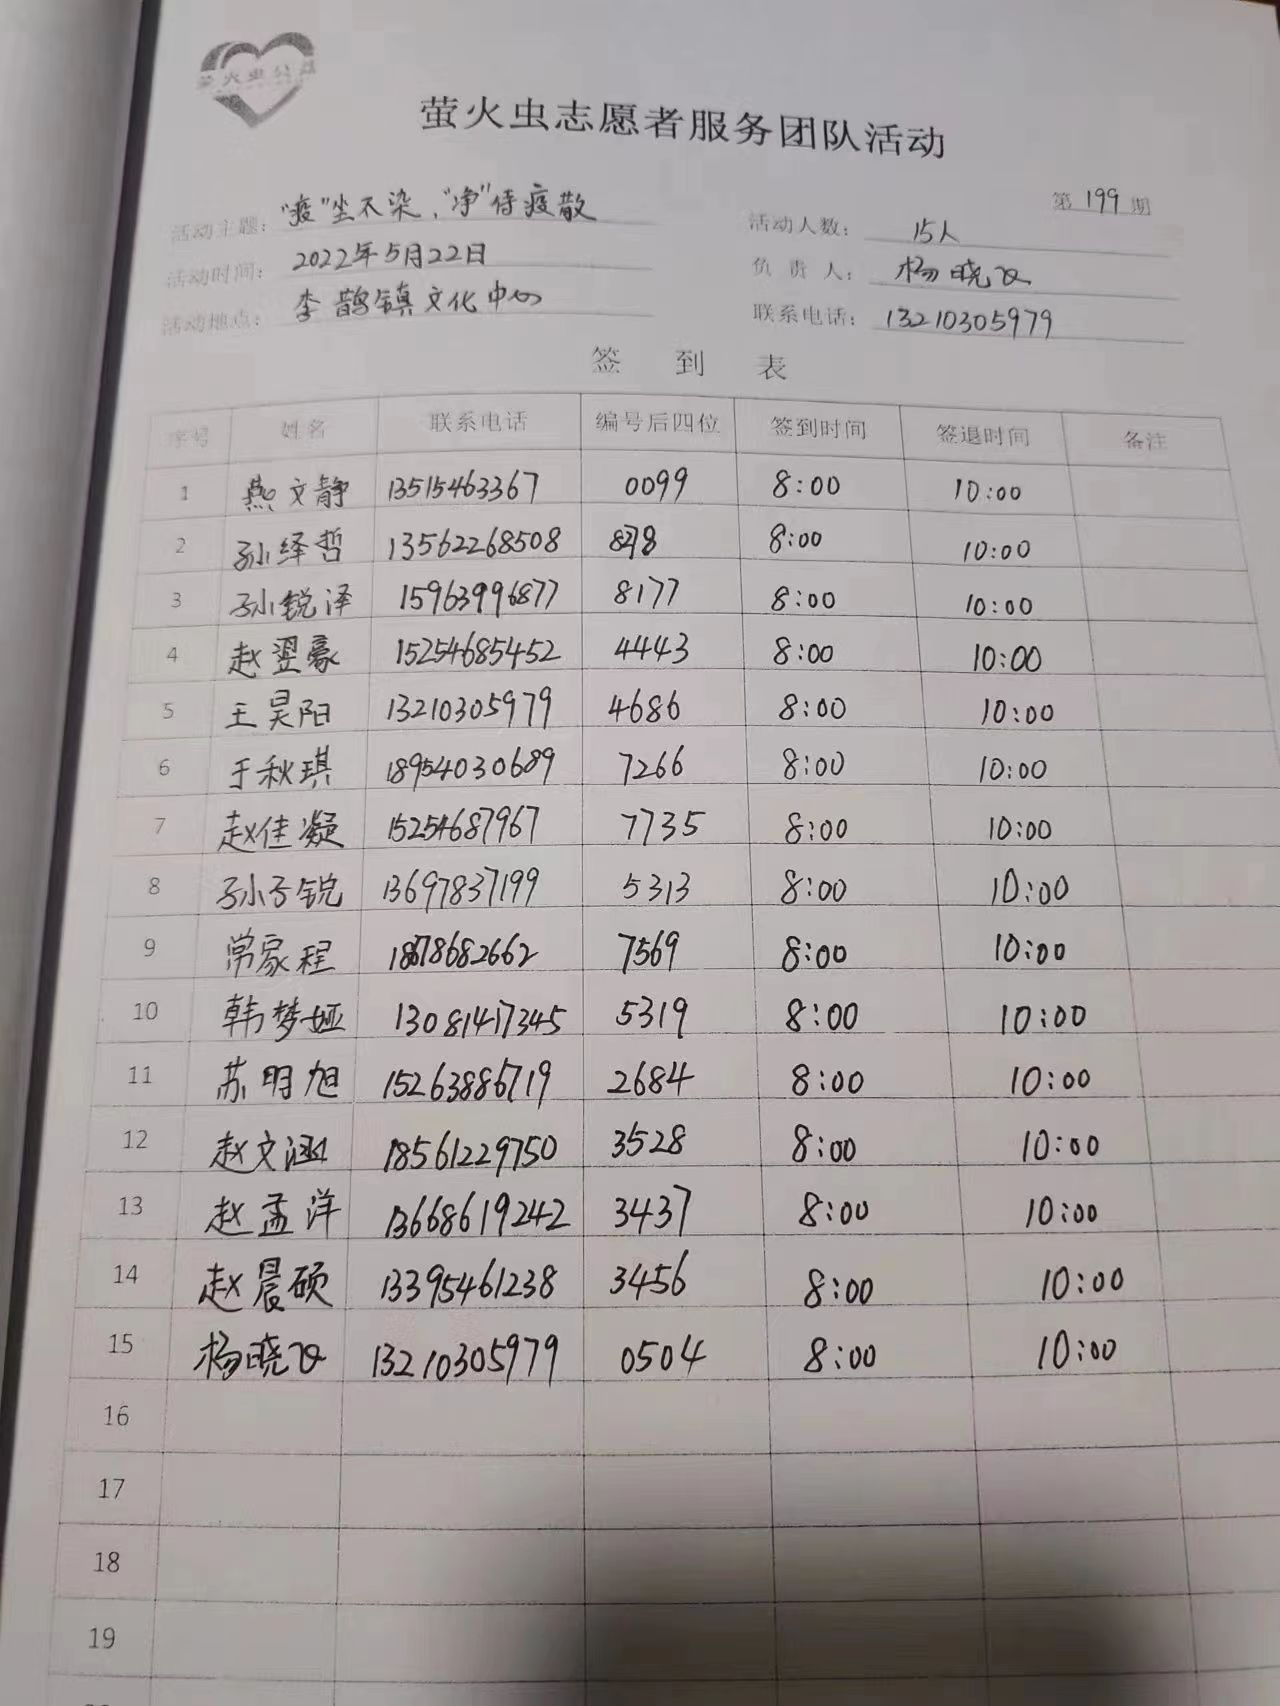 萤火虫公益
萤火虫志愿者服务团队活动
第 199 期
活动主题: "疫"尘不染,"净"待疫散 活动人数: 15人
活动时间: 2022年5月22日 负责人: 杨晓飞
活动地点: 李鹊镇文化中心 联系电话: 13210305979
签 到 表
序号 姓名 联系电话 编号后四位 签到时间 签退时间 备注
1 燕文静 13515463367 0099 8:00 10:00
2 孙绎哲 13562268508 8:00 10:00
3 孙锐泽 15963996877 8177 8:00 10:00
4 赵翌豪 15254685452 4443 8:00 10:00
5 王昊阳 13210305979 4686 8:00 10:00
6 于秋琪 18954030689 7266 8:00 10:00
7 赵佳凝 15254687967 7735 8:00 10:00
8 孙子锐 13697837199 5313 8:00 10:00
9 常家程 7569 8:00 10:00
10 韩梦娅 13081417345 5319 8:00 10:00
11 苏明旭 15263886719 2684 8:00 10:00
12 赵文涵 18561229750 3528 8:00 10:00
13 赵孟洋 13668619242 3437 8:00 10:00
14 赵晨硕 13395461238 3456 8:00 10:00
15 杨晓飞 13210305979 0504 8:00 10:00
16
17
18
19